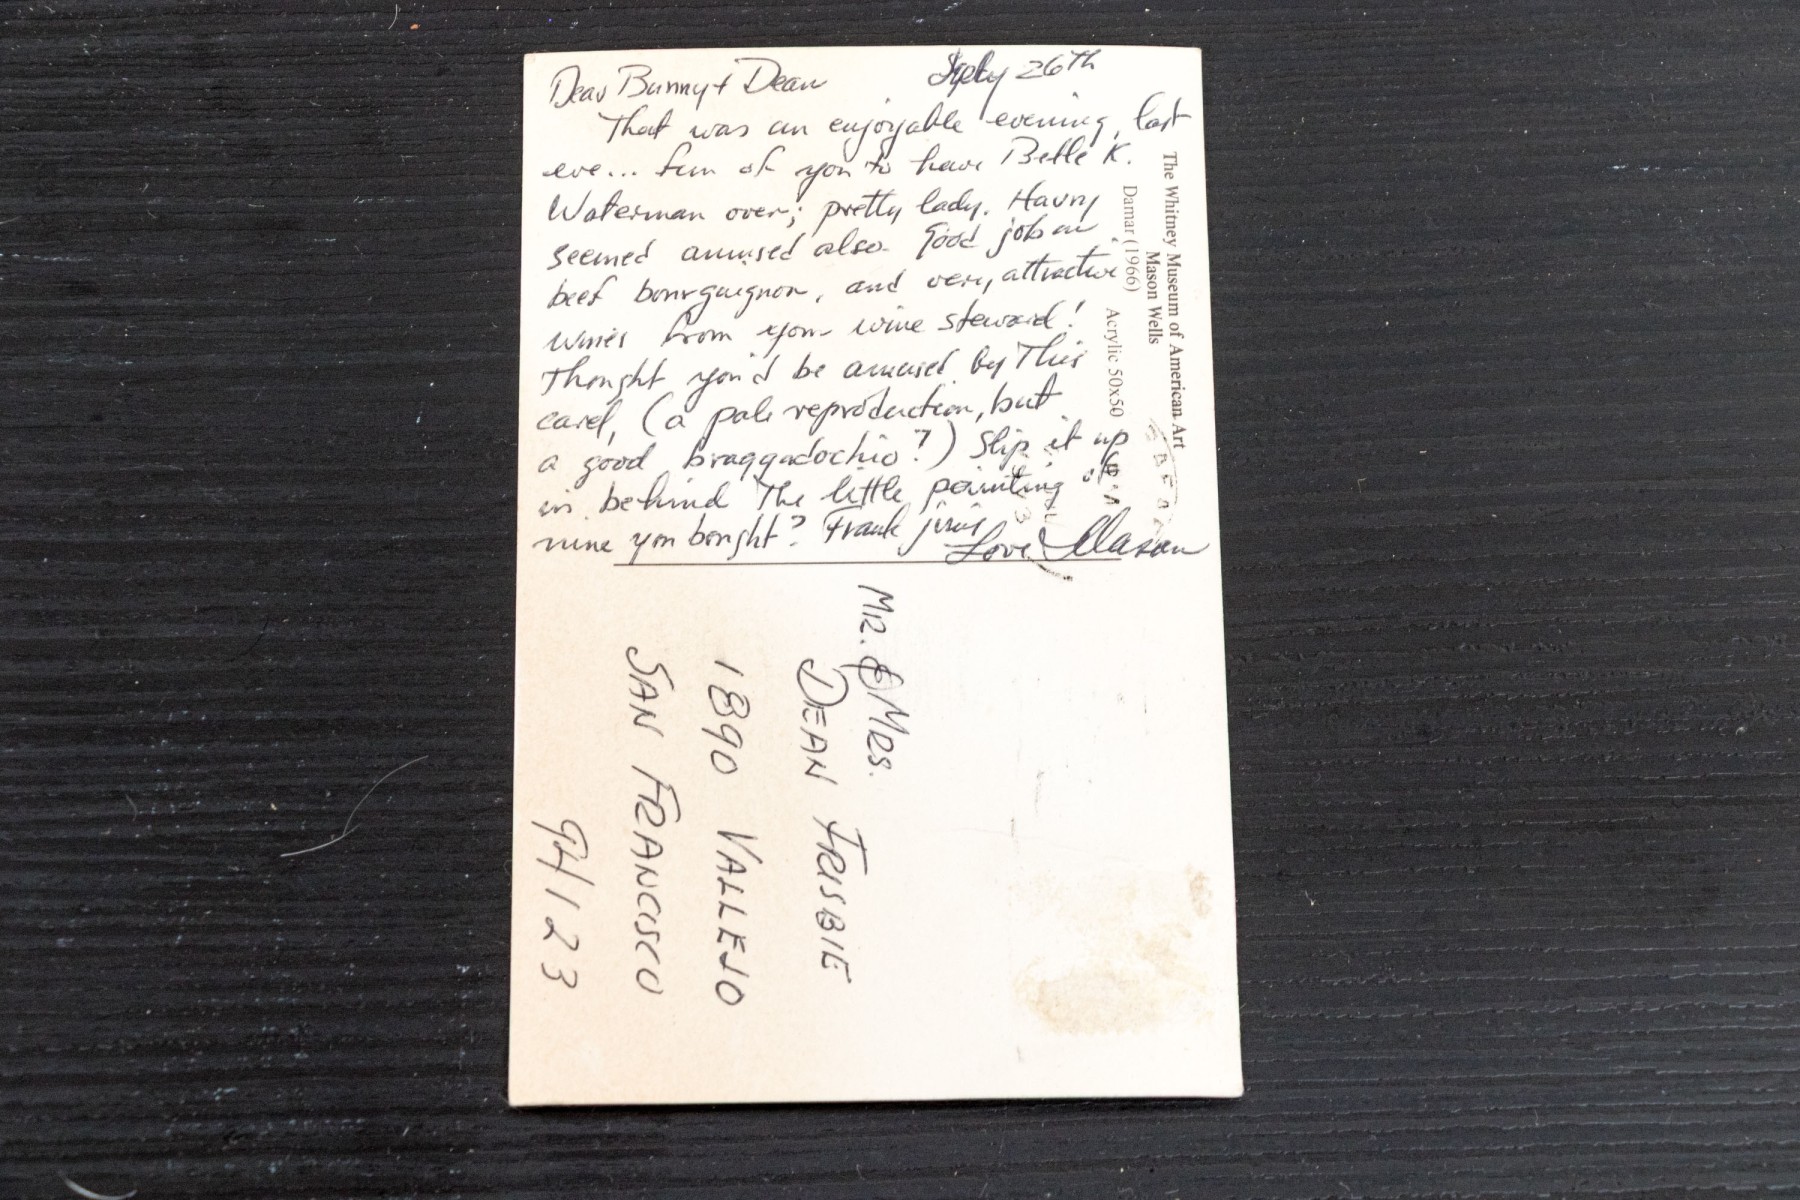 Dear Bunny + Dean
July 26th
That was an enjoyable evening, last
eve... fun of you to have Belle K.
Waterman over; pretty lady. Harry
seemed amused also. Good job on
beef bourguignon, and very attractive
wines from your wine steward!
Thought you'd be amused by This
card, (a pale reproduction, but
a good braggadochio?) Slip it up
in behind The little painting of
mine you bought? Frank
Love, Mason
The Whitney Museum of American Art
Mason Wells
Damar (1966) Acrylic 50x50
MR. & MRS.
DEAN FRISBIE
1890 VALLEJO
SAN FRANCISCO
94123